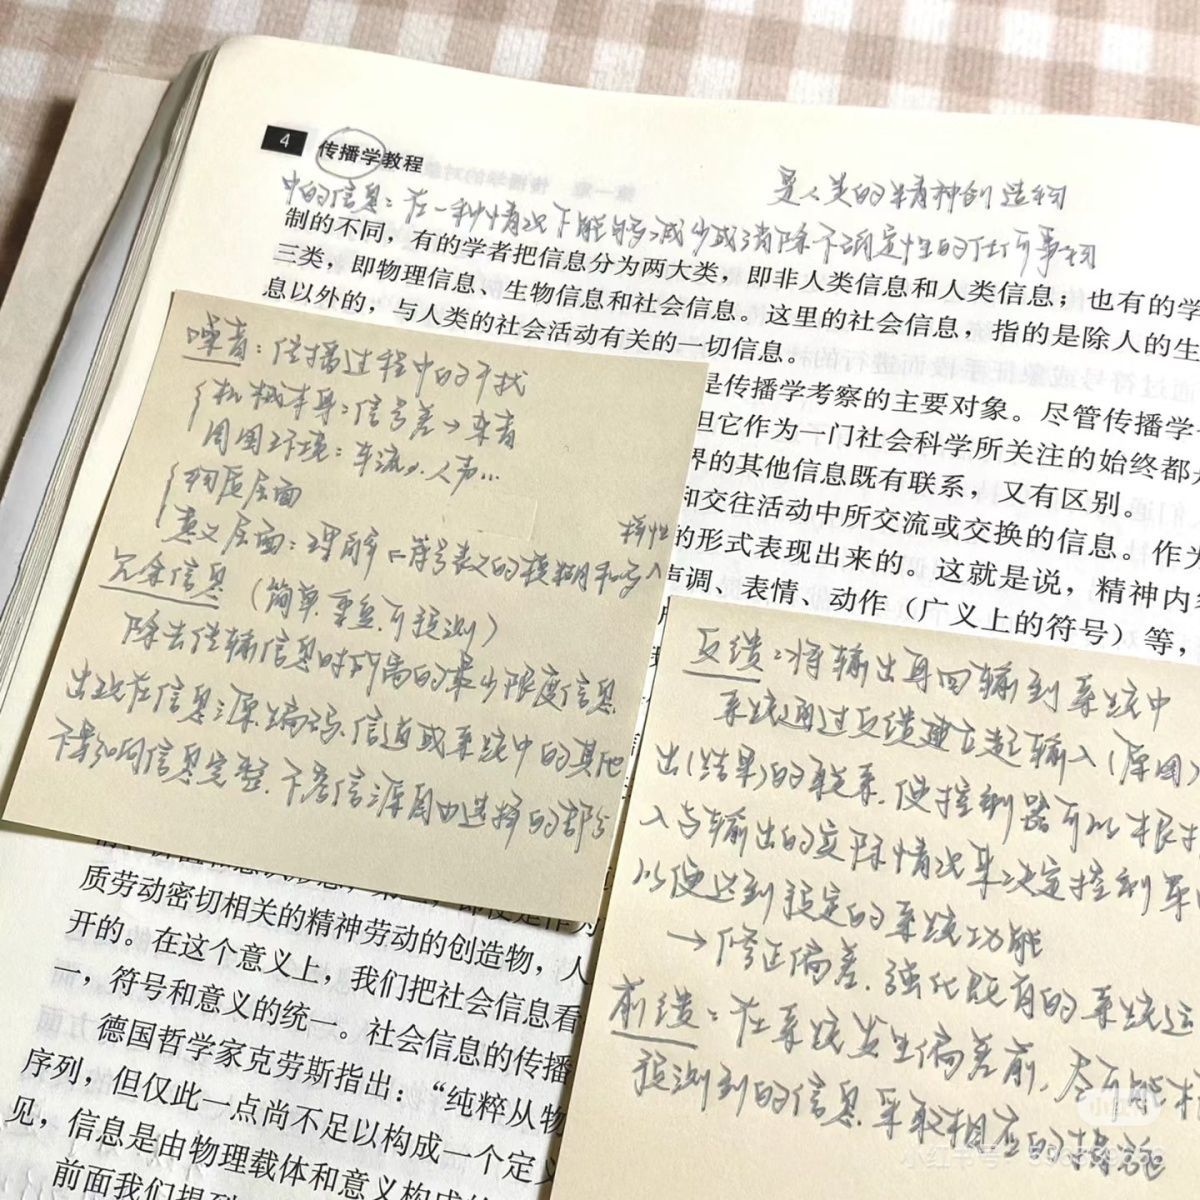 4 传播学教程
是人类的精神创造物
中的信息：在一种情况下能够减少或消除不确定性的任何事物
制的不同，有的学者把信息分为两大类，即非人类信息和人类信息；也有的学
三类，即物理信息、生物信息和社会信息。这里的社会信息，指的是除人的生
息以外的，与人类的社会活动有关的一切信息。
是传播学考察的主要对象。尽管传播学
但它作为一门社会科学所关注的始终都
界的其他信息既有联系，又有区别。
和交往活动中所交流或交换的信息。作为
的形式表现出来的。这就是说，精神内容
声调、表情、动作（广义上的符号）等，
噪音：传播过程中的干扰
机械本身：信号差→杂音
周围环境：车流、人声…
物质层面
意义层面：理解 符号表义的模糊和多
择性
冗余信息（简单.重复.可预测）
除去传输信息时所需的最少限度信息
出现在信息源.编码.信道或系统中的其他
不影响信息完整.不若信源自由选择的部分
反馈：将输出再回输到系统中
系统通过反馈建立起输入（原因）
出（结果）的联系.使控制器可以根
入与输出的实际情况来决定控制
以便达到预定的系统功能
→修正偏差.强化既有的系统运
前馈：在系统发生偏差前，尽可能
预测到的信息.采取相应的措施
质劳动密切相关的精神劳动的创造物，人
开的。在这个意义上，我们把社会信息看
一，符号和意义的统一。社会信息的传播
德国哲学家克劳斯指出：“纯粹从物
序列，但仅此一点尚不足以构成一个定义
见，信息是由物理载体和意义构成的
前面我们提到
小红书
小红书号：